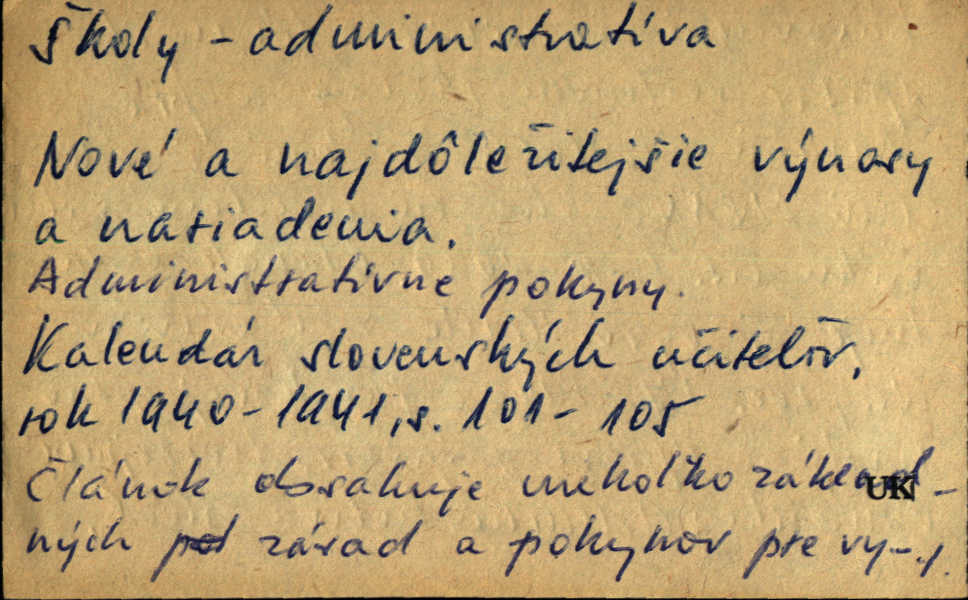 Školy - administratíva
Nové a najdôležitejšie výnosy
a nariadenia.
Administratívne pokyny.
Kalendár slovenských učiteľov,
rok 1940-1941, s. 101-105
Článok obsahuje niekoľko základ-
UK
ných zásad a pokynov pre vy-./.